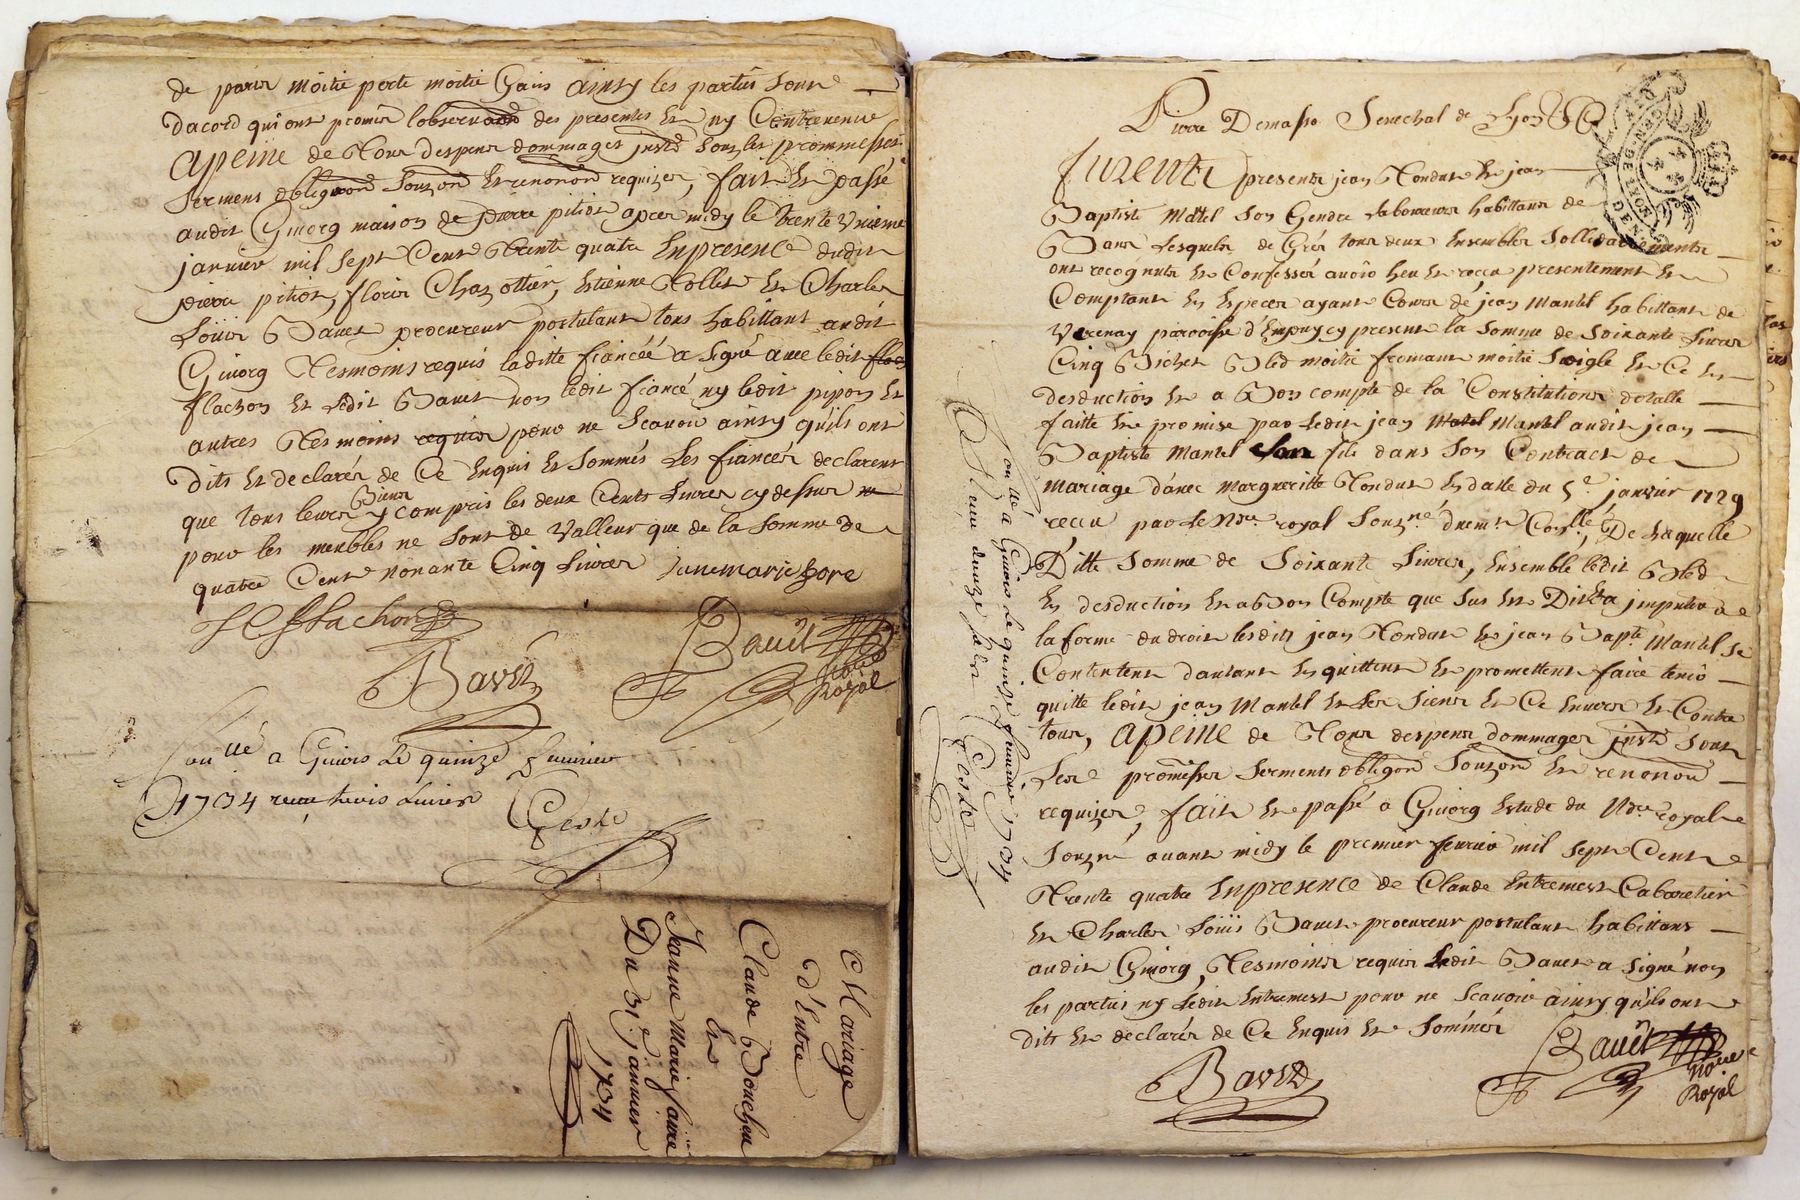 de paroir moitié perte moitié Gain ainsy les partíes sont
dacord qui ont promis lobservaõn des presentes et ny Contrevenir
Apeine de tous despens dommages jnstz sous les prommesses
Serments obligaõn Souzon et renonoñ requises, fait et passé
audit Givorg maison de pierre pition apres midy le trente unieme
janvier mil sept Cent trente quatre Enpresence dudit
pierre pition, florir Chazottier, Estienne Rollet et Charle
Loüir Bavet procureur postulant tous habittant audit
Givorg tesmoins requis laditte fiancéé a signé avec ledit
flachon et ledit Bavet non ledit fiancé ny ledit pipon et
autres tesmoins requis pour ne Scavoir ainsy quils ont
dits et declarés de Ce Enquis et Sommés Les fiancés declarent
que tous leurs Biens y compris les deux Cents Livres cy dessus
pour les meubles ne Sont de Valleur que de la Somme de
quatre Cent nonante Cinq Livres janemarie
Flachon
Bavet Bavet
Nore
Royal
a Givors Le quinze fevrier
1734 recu trois Livres
Cleste
Mariage
D'Entre
Claude Boucheu
Et
Jeanne Marie faure
Du 31e janvier
1734
Pierre Demasso Senechal de Lyon
GEN DE LYON
furent presents jean Rondut et jean
Baptiste Matel Son Gendre Laboureurs habittans de
Bans Lesquels de Grés tous deux Ensembles Sollidairement
ont recognuts et Confessés avoir heu et reçeu presentement et
Comptant En Especes ayant Cours de jean Mantel habittant de
Verenay parroisse d'Empuy cy present la Somme de Soixante Livres
Cinq Bichet Bled moitié fromant moitié Seigle et Ce En
desduction et a Bon compte de la Constitution dotalle
faitte et promise par ledit jean Matel Mantel audit jean
Baptiste Mantel Son fils dans Son Contract de
mariage d'avec Margueritte Rondut en datte du 5e janvier 1729
reçeu par le Nore royal Souzné Duemt Conllé, De Laquelle
Ditte Somme de Soixante Livres, Ensemble ledit Bled
En desduction et a Bon Compte que Sus est Dit a jmputer a
la forme du droit lesdits jean Rondut et jean Bapte Mantel se
Contentent d'autant En quittent et promettent faire tenir
quitte ledit jean Mantel et Les Siens et Ce Envers et Contre
tous, Apeine de tous despens dommages jnstz Sous
Les promesses Serments obligaõn Souzon et renonoñ
requises, fait et passé a Givorg Estude du Nore royal
Souzné avant midy le premier fevrier mil sept Cent
trente quatre Enpresence de Claude Entremest Cabaretier
et Charles Loüis Bavet procureur postulant habittans
audit Givorg tesmoins requis Ledit Bavet a signé non
les parties ny Ledit Entremest pour ne Scavoir ainsy quils ont
dits et declarés de Ce Enquis et Sommés
Bavet Bavet
Nore
Royal
a Givors Le quinze fevrier 1734
Cleste